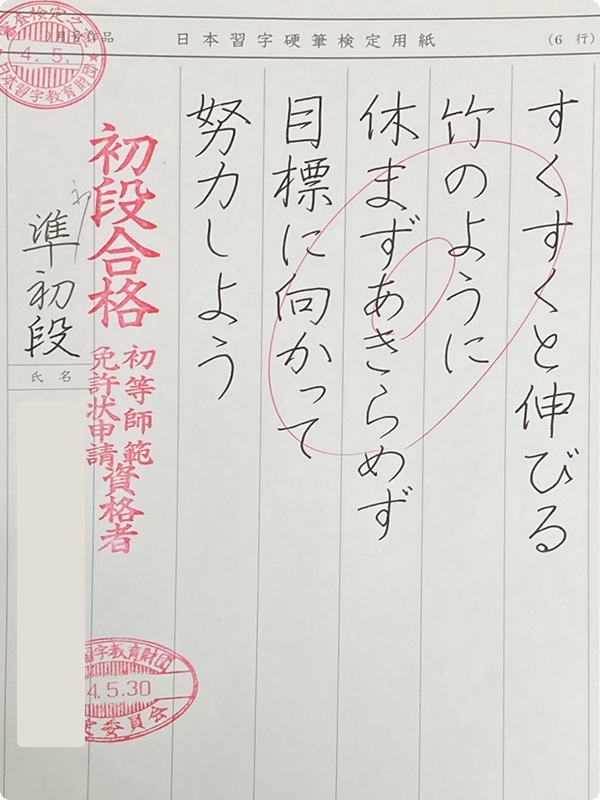 日本習字硬筆検定用紙
(6 行)
月号作品
すくすくと伸びる
竹のように
休まずあきらめず
目標に向かって
努力しよう
初段合格
初等師範
免許状申請
資格者
準初段
氏名
4.5.
日本習字教育財団
習字教育財団
4.5.30
定委員会